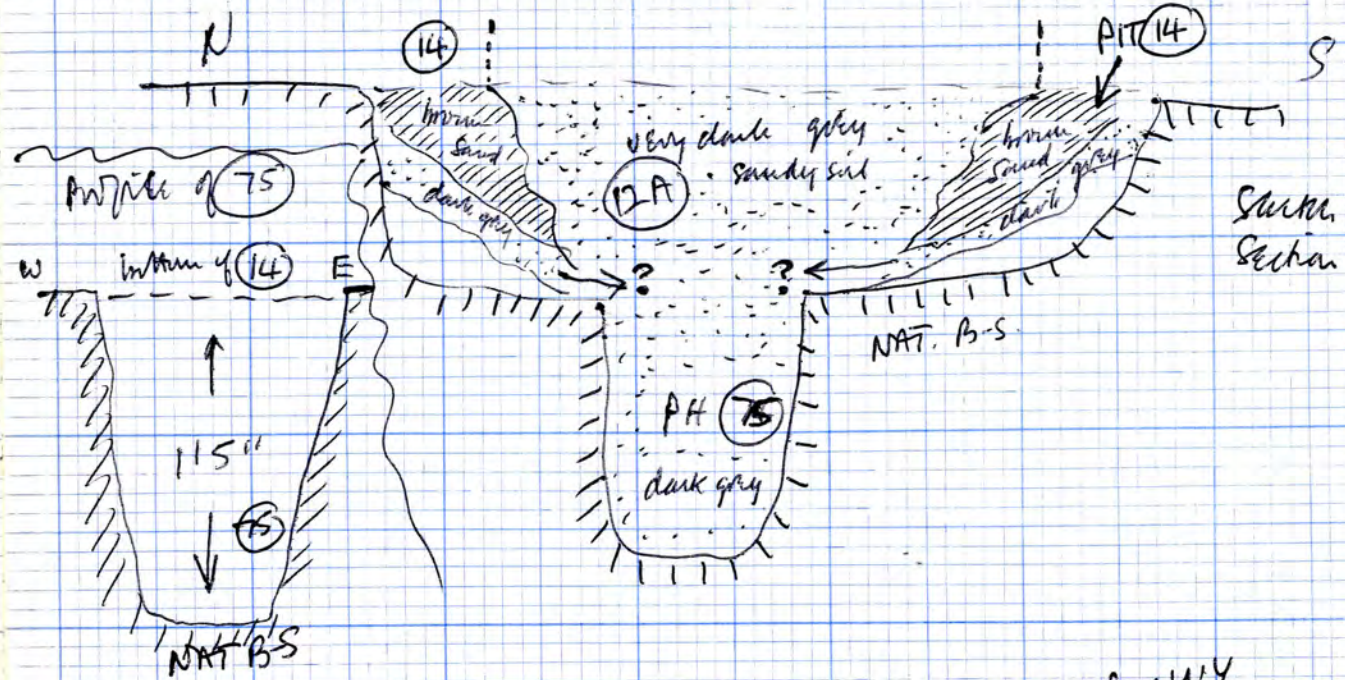 N
14
PIT 14
S
brown
sand
dark grey
very dark grey
sandy soil
12A
brown
sand
dark grey
Sketch
Section
Profile of 75
W bottom of 14 E
? ?
NAT. B-S.
1'5"
75
PH 75
dark grey
NAT B-S